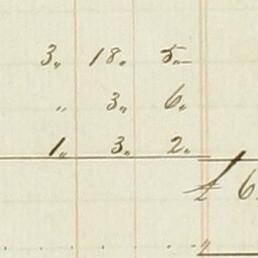 3„ 18„ 5„
„ 3„ 6„
1„ 3„ 2„
£ 6